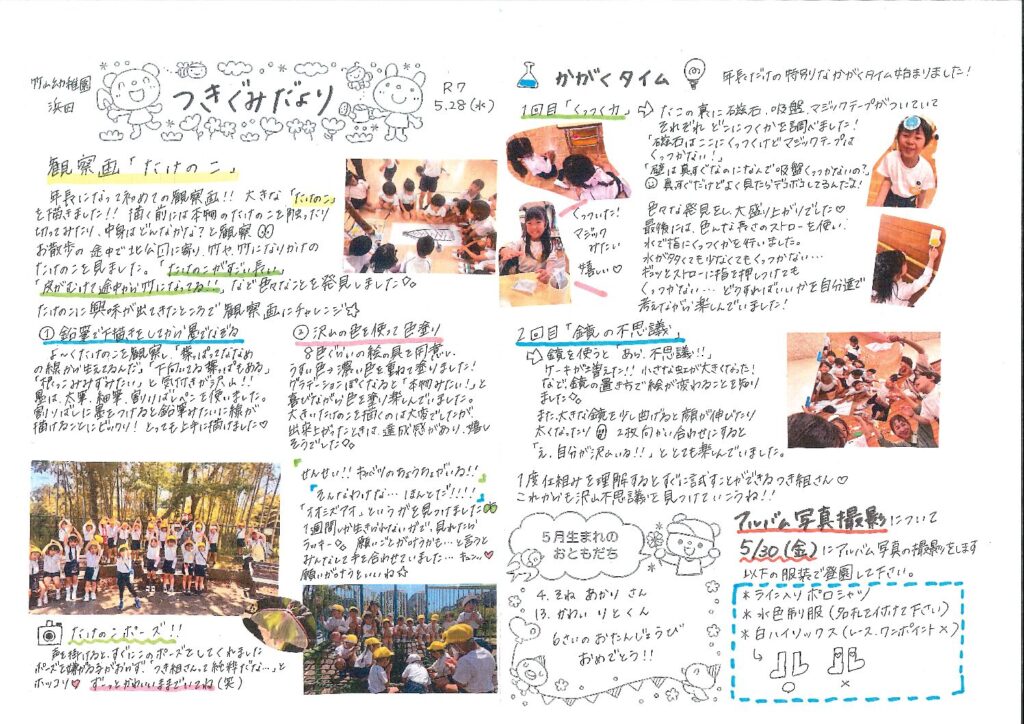 幼稚園
浜田
つきぐみだより
R7
5.28(水)
観察画「たけのこ」
年長になって初めての観察画!! 大きな「たけのこ」
を描きました!! 描く前には本物のたけのこを触ったり
切ってみたり、中身はどんなかな?と観察
お散歩の途中で北公園に寄り、竹や、竹になりかけの
たけのこを見ました。「たけのこがすごい長い」
「皮がむけて途中から竹になってる!!」など色々なことを発見しました。
たけのこに興味が出てきたところで観察画にチャレンジ☆
① 鉛筆で下描きをしてから墨でなぞる
よ〜くたけのこを観察し、「葉っぱってななめ
の線が生えてるんだ」「下向いてる葉っぱもある」
「根っこみみずみたい」と気付きが沢山!!
墨は、太筆、細筆、割りばしペンを使いました。
割りばしに墨をつけると鉛筆みたいに線が
描けることにビックリ! とっても上手に描けました♡
② 沢山の色を使って色塗り
8色ぐらいの絵の具を用意し、
うすい色→濃い色を重ねて塗りました!
グラデーションぽくなると「本物みたい!」と
喜びながら色を塗り楽しんでいました。
大きいたけのこを描くのは大変でしたが
出来上がったときは、達成感があり、嬉し
そうでした。
せんせい!! キャベツのちょうちょがいる!!
そんなわけな… ほんとだ!!!!
「オオミズアオ」というガを見つけました
1週間しか生きられないガで、見れたら
ラッキー 願いごとが叶うかも…と言うと
みんなして手を合わせていました…キュン♡
願いが叶うといいね☆
たけのこポーズ!!
声を掛けると、すぐにこのポーズをしてくれました
ポーズを嫌がる子がおらず「つき組さんって純粋だな…」と
ホッコリ♥ ずーっとかわいいままでいてね(笑)
かがくタイム
年長だけの特別なかがくタイム始まりました!
1回目「くっつく力」
たこの裏に磁石、吸盤、マジックテープがついていて
それぞれどこにつくかを調べました!
「磁石はここにくっつくけどマジックテープは
くっつかない!」
「壁は真すぐなのになんで吸盤くっつかないの?」
真すぐだけどよく見たらデコボコしてるんだよ!
くっついた!
マジック
みたい
嬉しい♡
色々な発見をし、大盛り上がりでした♡
最後には、色んな長さのストローを使い、
水で指にくっつくかを行いました。
水が多くても少なくてもくっつかない…
ギュッとストローに指を押しつけても
くっつかない… どうすればいいかを自分達で
考えながら楽しんでいました!
2回目「鏡の不思議」
鏡を使うと「あら、不思議!!」
ケーキが増えた!! 小さな虹が大きくなった!
など、鏡の置き方で絵が変わることを知り
ました。
また、大きな鏡を少し曲げると顔が伸びたり
太くなったり 2枚向かい合わせにすると
「え、自分が沢山いる!!」ととても楽しんでいました。
1度仕組みを理解するとすぐに試すことができるつき組さん♡
これからも沢山不思議を見つけていこうね!!
5月生まれの
おともだち
4. そね あかり さん
13. かわい りと くん
6さいのおたんじょうび
おめでとう!!
アルバム写真撮影について
5/30(金)にアルバム写真の撮影をします
以下の服装で登園して下さい。
*ライン入りポロシャツ
*水色制服(名札を付けて下さい)
*白ハイソックス(レース、ワンポイント×)
○ ×